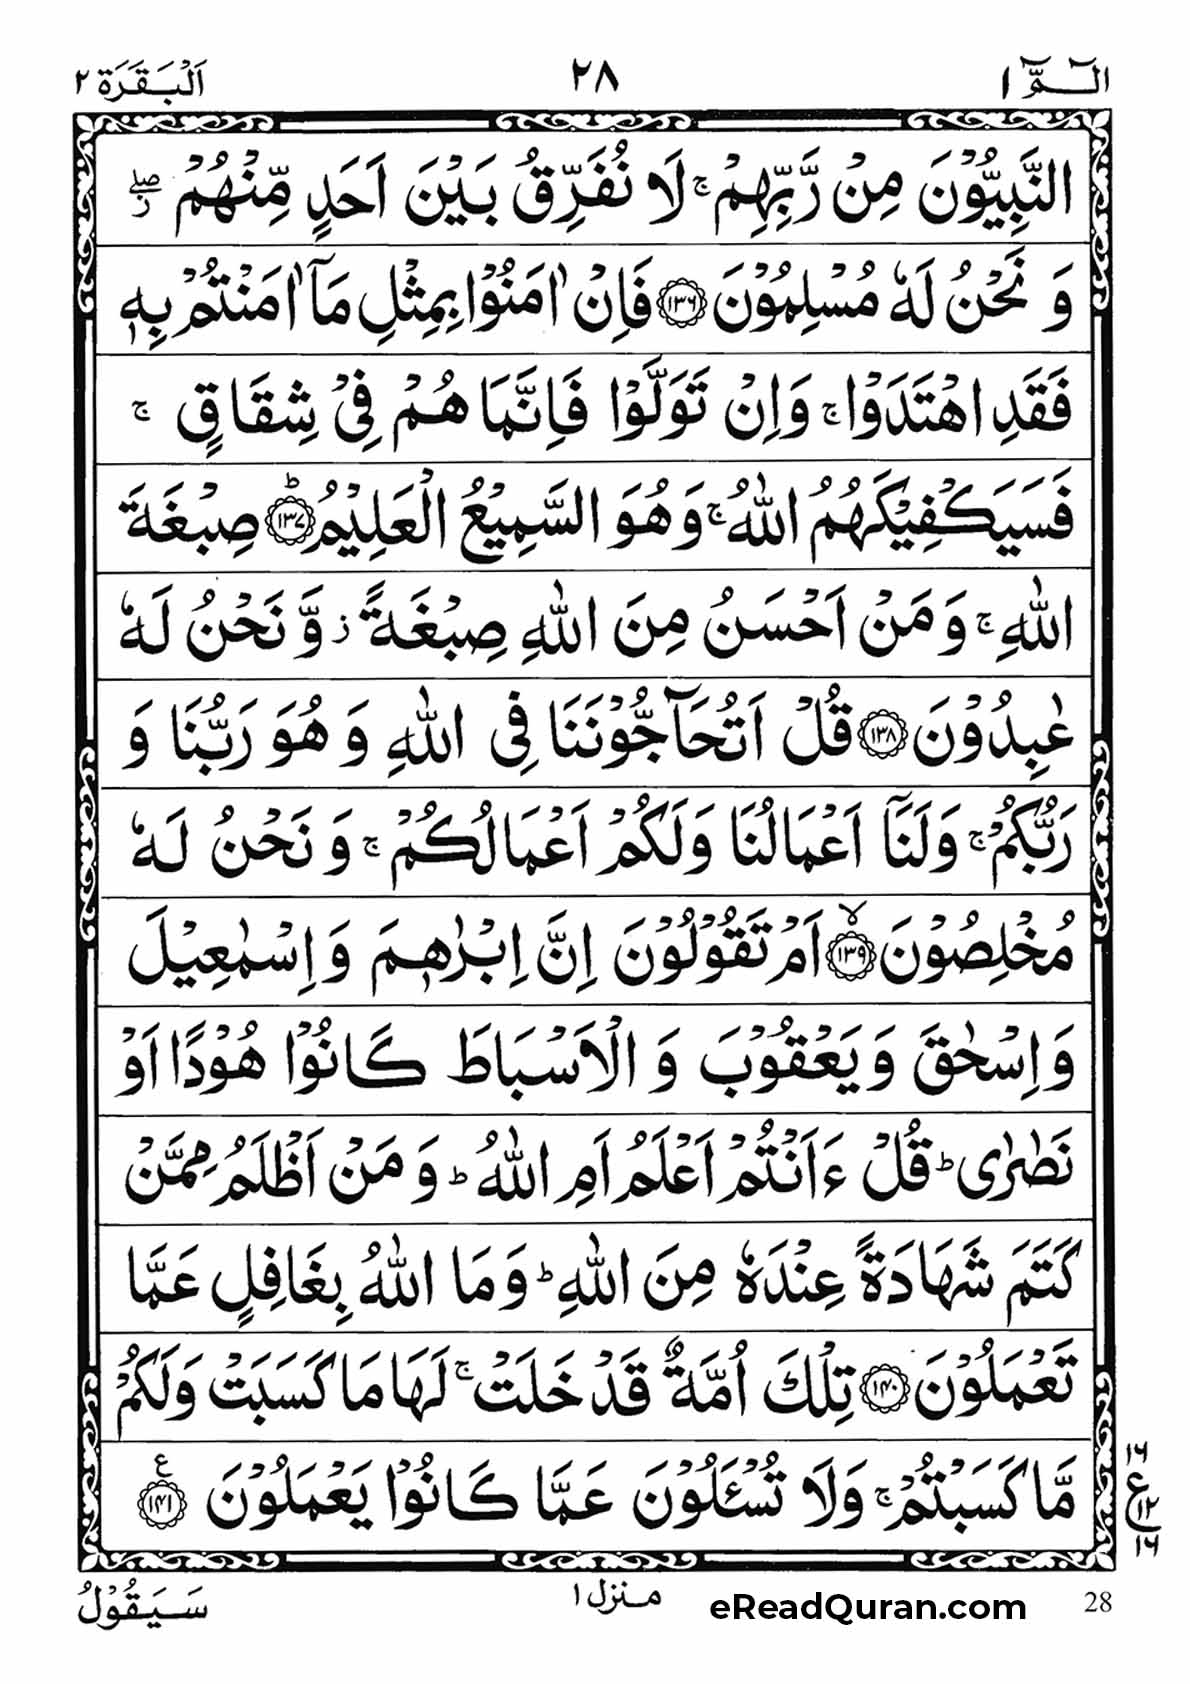 الٓـمّٓ ١ ٢٨ اَلْبَقَرَة ٢
النَّبِيُّوْنَ مِنْ رَّبِّهِمْ ۚ لَا نُفَرِّقُ بَيْنَ اَحَدٍ مِّنْهُمْ ۖز
وَ نَحْنُ لَهٗ مُسْلِمُوْنَ ﴿۱۳۶﴾ فَاِنْ اٰمَنُوْا بِمِثْلِ مَاۤ اٰمَنْتُمْ بِهٖ
فَقَدِ اهْتَدَوْا ۚ وَاِنْ تَوَلَّوْا فَاِنَّمَا هُمْ فِيْ شِقَاقٍ ۚ
فَسَيَكْفِيْكَهُمُ اللّٰهُ ۚ وَهُوَ السَّمِيْعُ الْعَلِيْمُ ﴿۱۳۷﴾ؕ صِبْغَةَ
اللّٰهِ ۚ وَ مَنْ اَحْسَنُ مِنَ اللّٰهِ صِبْغَةً ز وَّ نَحْنُ لَهٗ
عٰبِدُوْنَ ﴿۱۳۸﴾ قُلْ اَتُحَآجُّوْنَنَا فِي اللّٰهِ وَ هُوَ رَبُّنَا وَ
رَبُّكُمْ ۚ وَلَنَاۤ اَعْمَالُنَا وَلَكُمْ اَعْمَالُكُمْ ۚ وَ نَحْنُ لَهٗ
مُخْلِصُوْنَ ﴿۱۳۹﴾ۙ اَمْ تَقُوْلُوْنَ اِنَّ اِبْرٰهٖمَ وَ اِسْمٰعِيْلَ
وَ اِسْحٰقَ وَ يَعْقُوْبَ وَ الْاَسْبَاطَ كَانُوْا هُوْدًا اَوْ
نَصٰرٰى ؕ قُلْ ءَاَنْتُمْ اَعْلَمُ اَمِ اللّٰهُ ؕ وَ مَنْ اَظْلَمُ مِمَّنْ
كَتَمَ شَهَادَةً عِنْدَهٗ مِنَ اللّٰهِ ؕ وَ مَا اللّٰهُ بِغَافِلٍ عَمَّا
تَعْمَلُوْنَ ﴿۱۴۰﴾ تِلْكَ اُمَّةٌ قَدْ خَلَتْ ۚ لَهَا مَا كَسَبَتْ وَلَكُمْ
مَّا كَسَبْتُمْ ۚ وَلَا تُسْـَٔلُوْنَ عَمَّا كَانُوْا يَعْمَلُوْنَ ﴿۱۴۱﴾ ع
١٦
ع ١٢
١٦
28 eReadQuran.com منزل ١ سَيَقُوْلُ